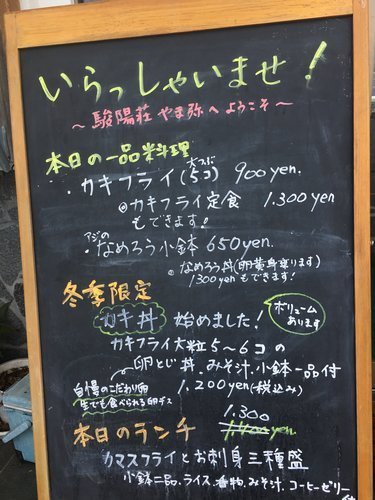 いらっしゃいませ!
~駿陽荘 やま弥へ ようこそ~
本日の一品料理
・カキフライ(大つぶ5コ) 900yen.
◎カキフライ定食 1.300yen
もできます!
・アジのなめろう小鉢 650yen.
◎なめろう丼(卵黄身乗ります)
1300yenもできます!
冬季限定
カキ丼 始めました!
ボリュームあります
カキフライ大粒5~6コの
卵とじ丼.みそ汁.小鉢一品付
自慢のこだわり卵 1.200yen(税込み)
生でも食べられる卵デス
1.300
本日のランチ
カマスフライとお刺身三種盛
小鉢一品.ライス.香物.みそ汁.コーヒーゼリー